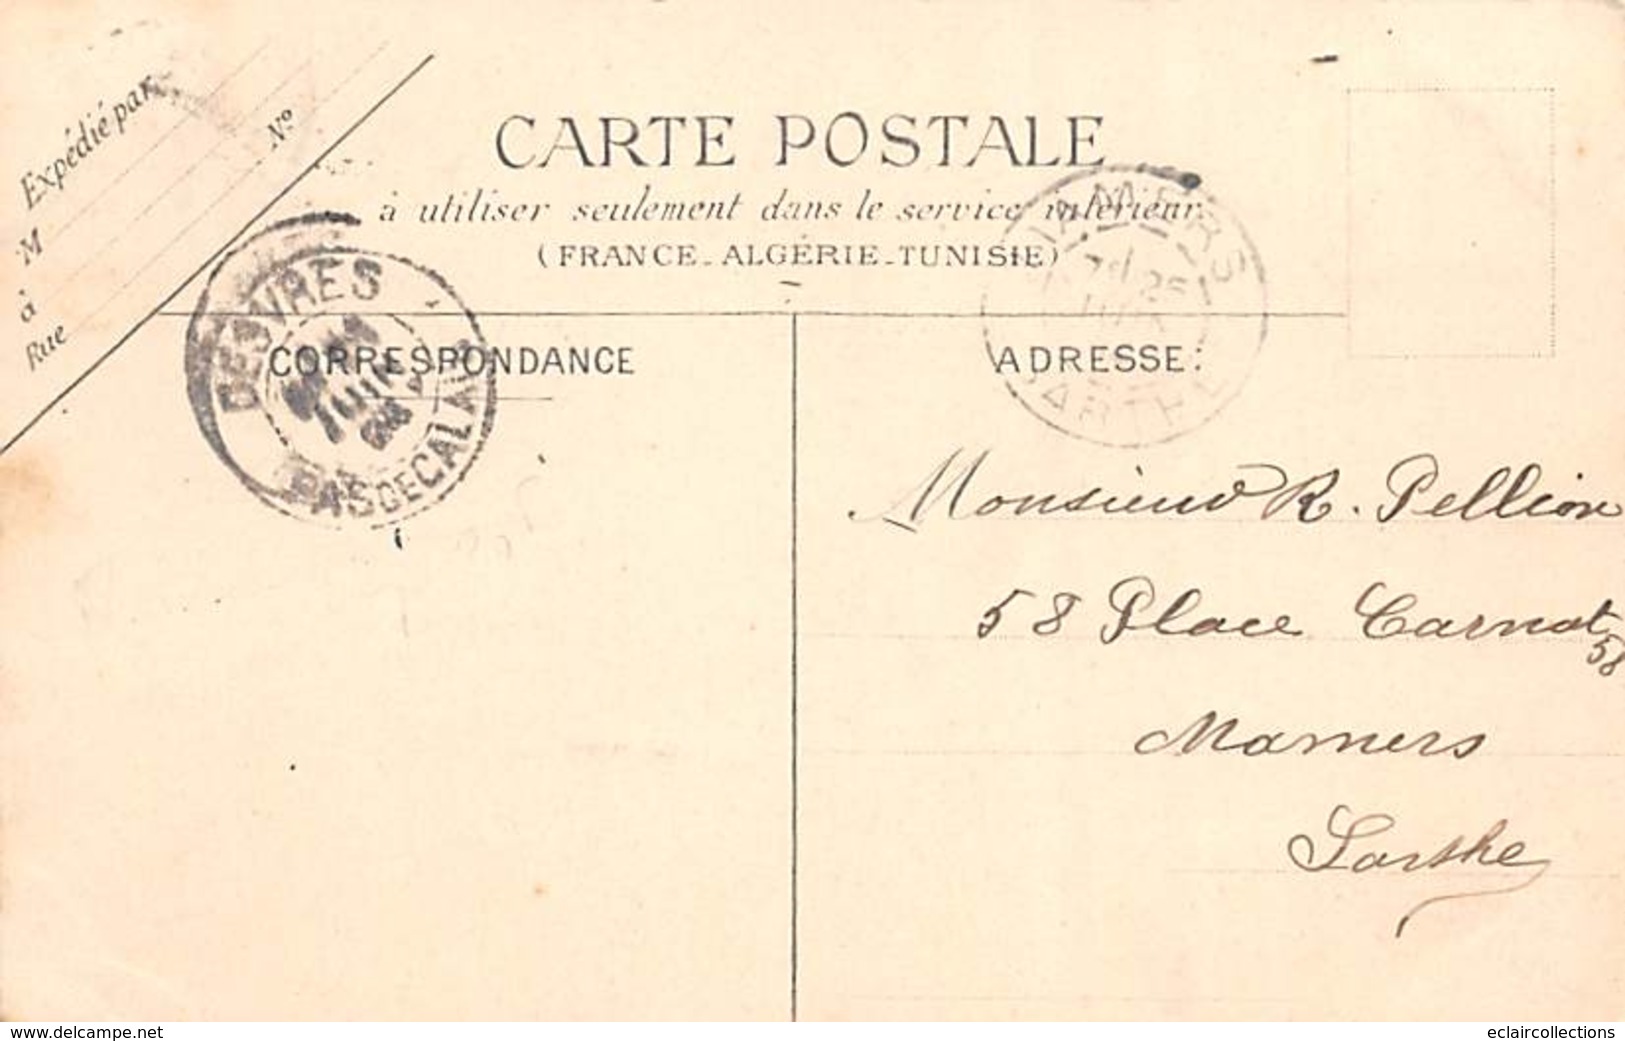 Expédié par
Nº
M
à
Rue
CARTE POSTALE
à utiliser seulement dans le service intérieur
(FRANCE_ALGÉRIE_TUNISIE)
DESVRES
JUIN
PAS DE CALAIS
MAMERS
25
SARTHE
CORRESPONDANCE
ADRESSE:
Monsieur R. Pellion
58 Place Carnot
58
Mamers
Sarthe
www.delcampe.net
eclaircollections